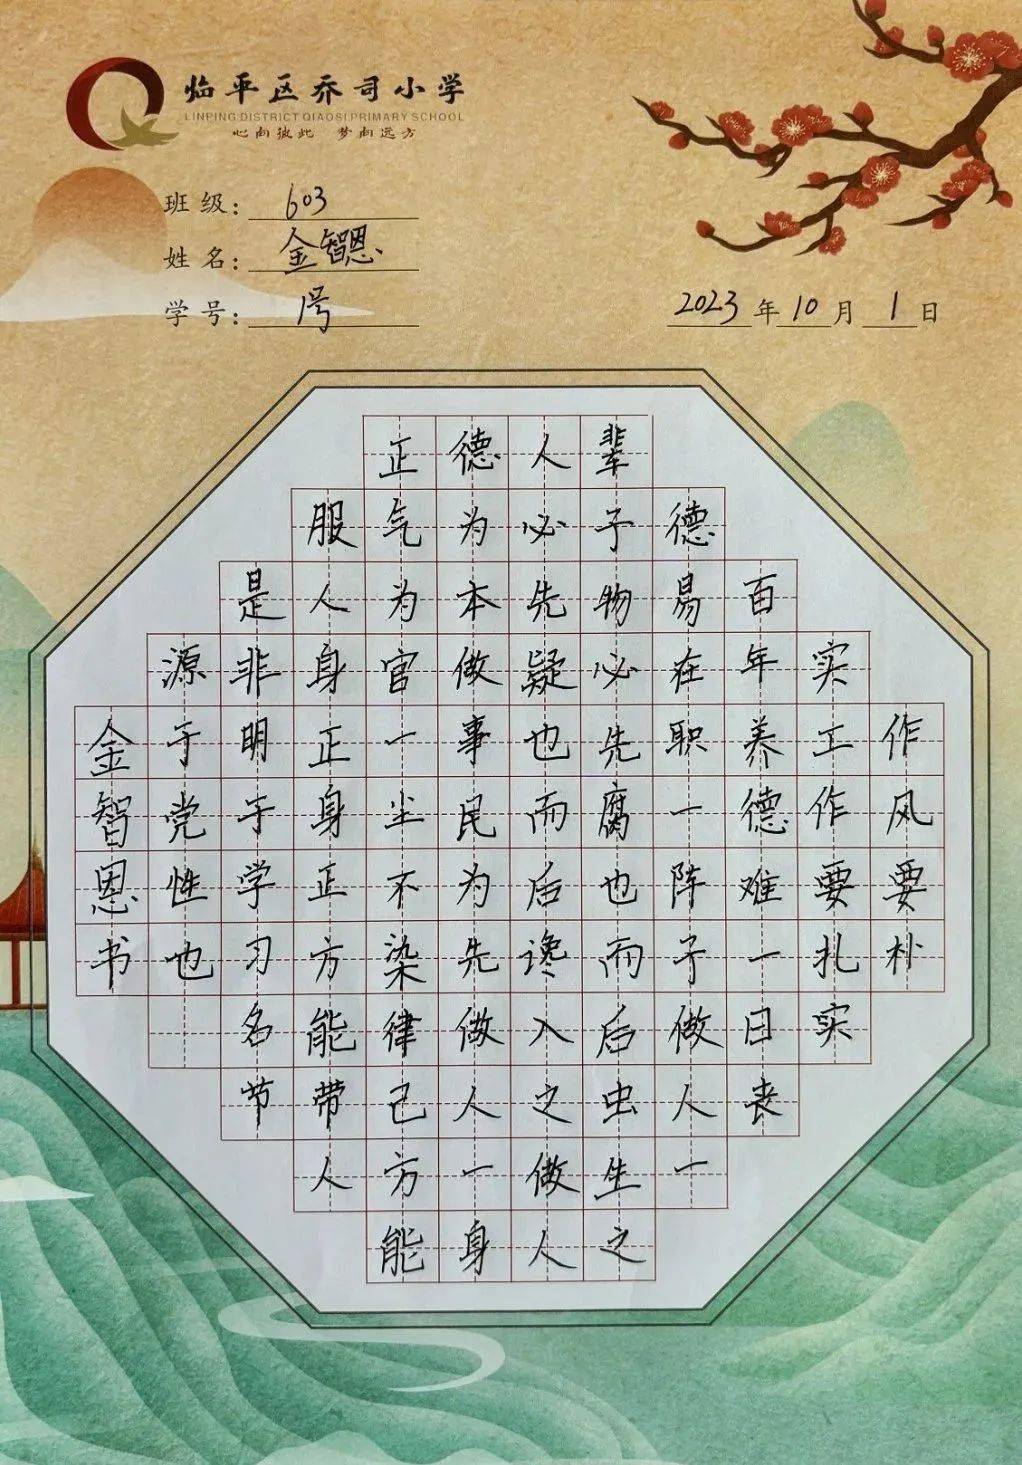 临平区乔司小学
LINPING DISTRICT QIAOSI PRIMARY SCHOOL
心向彼此 梦向远方
班级：603
姓名：金智恩
学号：1号
2023年10月1日
作风要朴
实工作要扎实
百年养德难一日丧
德易在职一阵子做人一
辈子物必先腐也而后虫生之
人必先疑也而后谗入之做人
德为本做事民为先做人一身
正气为官一尘不染律己方能
服人身正身正方能带人
是非明于学习名节
源于党性也
金智恩书